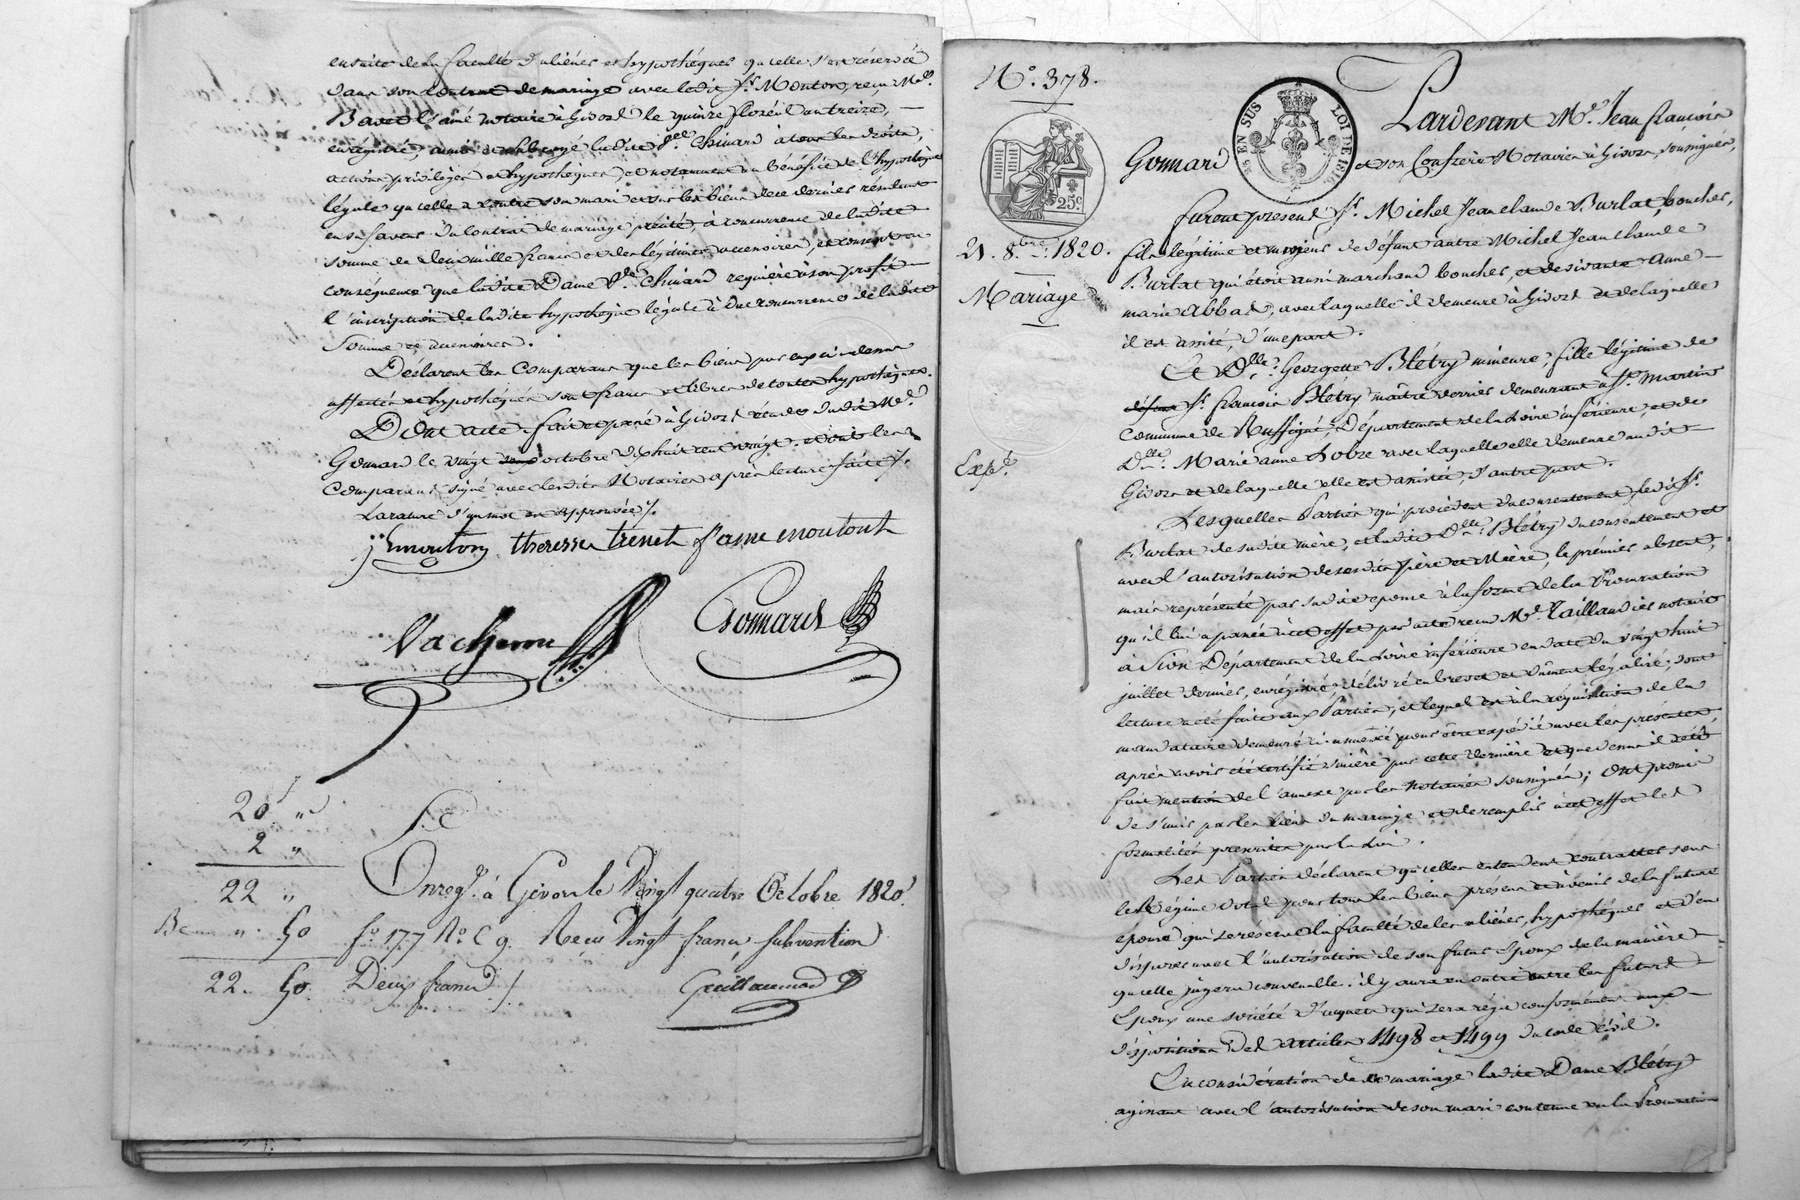 ensuite de la faculté d'aliéner et hypothéquer qu'elle s'est réservée
dans son contrat de mariage avec ledit Sr. Mouton, reçu Me.
Baret l'ainé notaire à Givors le quinze floréal an treize,
enregistré, a subrogé ladite De. Chinard à tous les droits,
actions, privilèges et hypothèques, et notamment au bénéfice de l'hypothèque
légale qu'elle a contre son mari et sur les biens de ce dernier résultant
en sa faveur du contrat de mariage précité, à concurrence de ladite
somme de deux mille francs et des légitimes accessoires, et consent en
conséquence que ladite Dame Ve. Chinard requière à son profit
l'inscription de ladite hypothèque légale à due concurrence de ladite
somme et accessoires.
Déclarent les comparans que les biens par eux ci-dessus
affectés et hypothéqués sont francs et libres de toutes hypothèques.
Dont acte fait et passé à Givors étude dudit Me.
Gonnard le vingt octobre dix huit cent vingt et ont les
comparans signé avec lesdits Notaires après lecture faite /.
La rature d'un mot est approuvée /.
j mouton theresse trenet fame moutont
Vacheron Gonnard
20 "
2 "
22 "
" 50
22. 50
Enregé. à Givors le Vingt quatre Octobre 1820.
fo. 177 Ro. C 9. Reçu Vingt francs, subvention
Deux francs /.
Guillaumod
No. 378.
25c.
25 EN SUS LOI DE 1816
21. 8bre. 1820.
Mariage
Expé.
Pardevant Me. Jean françois
Gonnard et son Confrère Notaires à Givors, soussignés,
furent présens Sr. Michel Jean claude Burlat, boucher,
fils légitime et majeur de défunt autre Michel Jean Claude
Burlat qui étoit aussi marchand boucher, et de vivante Anne
marie Abbat, avec laquelle il demeure à Givors et de laquelle
il est assisté, d'une part.
Et Dlle. Georgette Blétry mineure, fille légitime de
défunt Sr. françois Blétry maître verrier demeurant à St. Martin
commune de Ruffigné, Département de la Loire inférieure, et de
De. Marie anne avec laquelle elle demeure audit
Givors et de laquelle elle est assistée, d'autre part.
Lesquelles Parties qui procèdent du consentement, ledit Sr.
Burlat de sadite mère, et ladite Dlle. Blétry du consentement et
avec l'autorisation de sesdits père et Mère, le premier absent,
mais représenté par sadite épouse à la forme de la Procuration
qu'il lui a passée à cet effet par acte reçu Me. Taillandier notaire
à Sion Département de la Loire inférieure en date du vingt huit
juillet dernier, enregistré, délivré en brevet et dûment légalisé, dont
lecture a été faite aux Parties, et lequel est à la réquisition de la
mandataire demeuré ci annexé pour être expédié avec les présentes
après avoir été certifié sincère par cette dernière et que dessus il a été
fait mention de l'annexe par les notaires soussignés; Ont promis
de s'unir par les liens du mariage et de remplir à cet effet les
formalités prescrites par la Loi.
Les Parties déclarent qu'elles entendent contracter sous
le Régime dotal pour tous les biens présens et à venir de la future
épouse qui se réserve la faculté de les aliéner, hypothéquer et d'en
disposer avec l'autorisation de son futur Epoux de la manière
qu'elle jugera convenable: il y aura en outre entre les futurs
Epoux une société d'acquets qui sera régie conformément aux
dispositions des articles 1498 et 1499 du code Civil.
En considération de ce mariage ladite Dame Blétry
agissant avec l'autorisation de son mari contenue en la Procuration